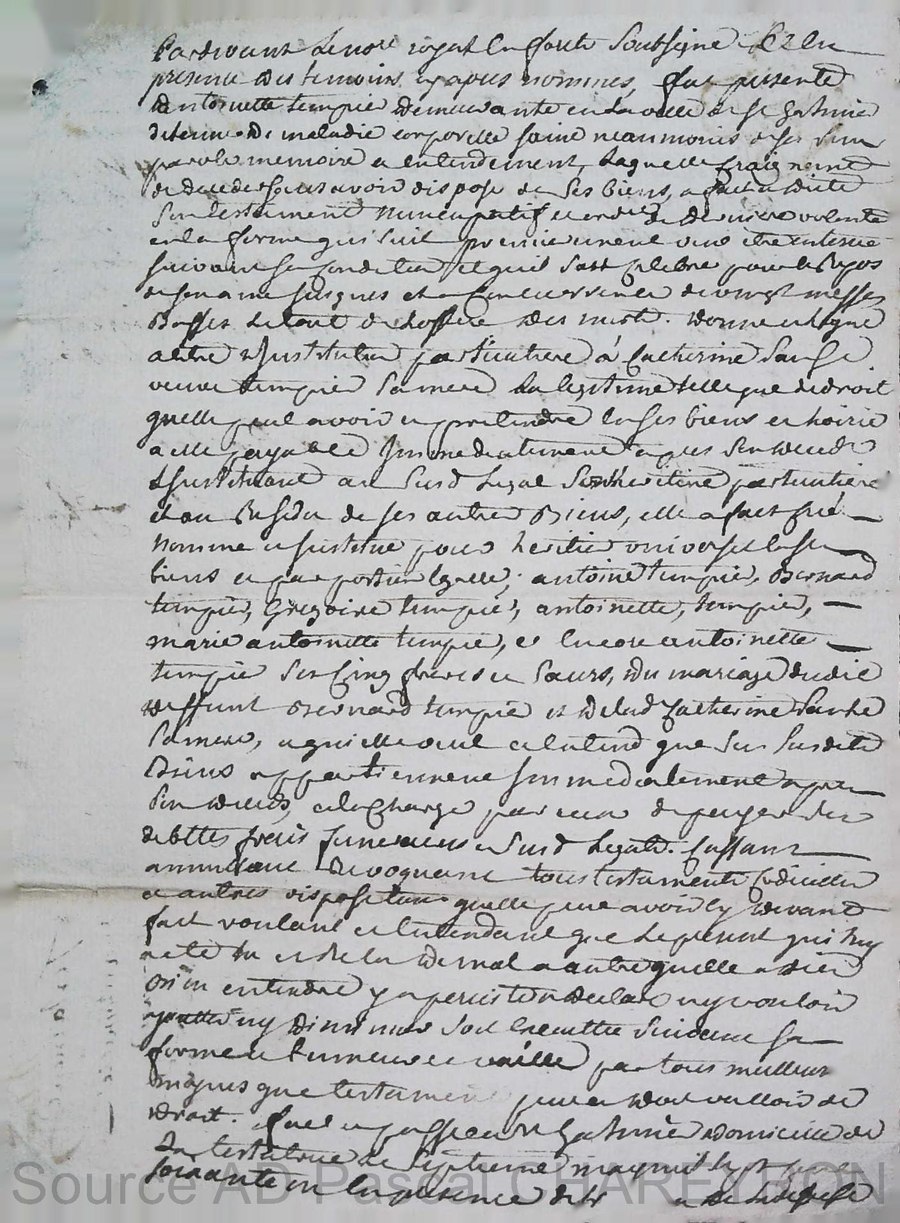 Pardevant le nore royal en forets soubsigné et en
presence des temoins cy apres nommes, fut presente
antoinette tempié demeurante en la ville de st galmier
detenue de maladie corporelle saine neanmoins de ses sens
parole memoire et entendement laquelle craignant
de deceder sans avoir dispose de ses biens, a fait a dicté
son testament nuncupatif et ord de derniere volonté
en la forme qui suit premierement veut etre enterree
suivant sa condition et quil soit celebre pour le repos
de son ame jusques et a concurrence de vingt messes
Basses le tout de loffice des morts. donne et legue
a titre dinstitution particuliere a Catherine
veuve tempié sa mere la legitime telle que de droit
quelle peut avoir et pretendre en ses biens et hoirie
a elle payable immediatement apres son deces
Linstituant au susd legat son heritiere particuliere
et au Residu de ses autres Biens, elle a fait créé
nomme et institue pour heritier universel en ses
biens et par portion Egalle, antoine tempié, Bernard
tempié, Gregoire tempié, antoinette, tempié,
marie antoinette tempié, et Encore antoinette
tempié ses Cinq freres et sœurs, du mariage dudit
deffunt Bernard tempié et de lad Catherine
sa mere, a qui elle veut et entend que ses susdits
Biens appartiennent immediatement apres
son deces, a la charge par eux de payer ses
debttes frais funeraires et susd legat. Cassant
annullant Revoquant tous testaments Codicilles
et autres dispositions quelle peut avoir cy devant
fait voulant et entendant que le present qui luy
a ete lu et relu de mot a autre quelle a dit
bien entendre y a persiste declare ny vouloir
ajoutter ny diminuer soit Executte suivant sa
forme et teneur et vaille par tous meilleurs
moyens que testament peut et doit valloir de
droit. fait et passé a st galmier domicille de
la testatrice le septieme may mil sept cent
soixante en presence de
Source AD Pascal CHAREYRON